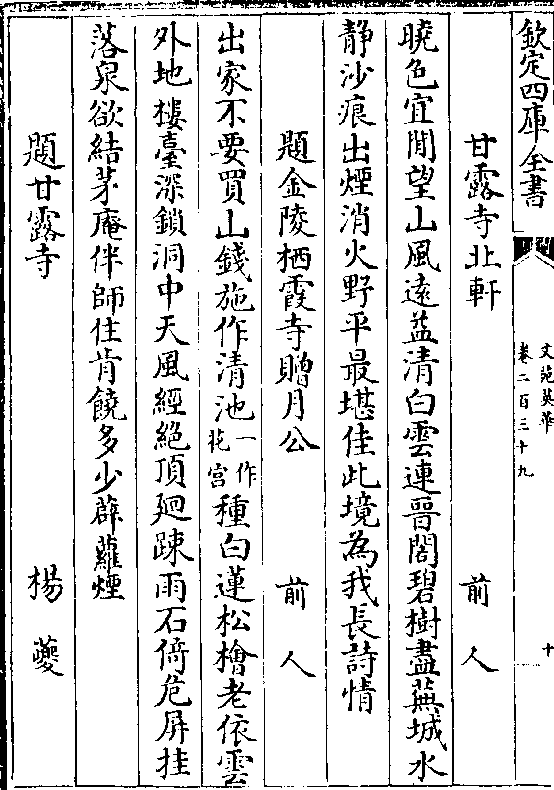 欽定四庫全書
文苑英華
卷二百三十九
十
甘露寺北軒 前人
曉色宜閒望山風遠益清白雲連晉閣碧樹盡蕪城水
靜沙痕出煙消火野平最堪佳此境為我長詩情
題金陵栖霞寺贈月公 前人
出家不要買山錢施作清池一作花宫種白蓮松檜老依雲
外地樓臺深鎖洞中天風經絶頂廻踈雨石倚危屏挂
落泉欲結茅庵伴師住肯饒多少薜蘿煙
題甘露寺 楊夔